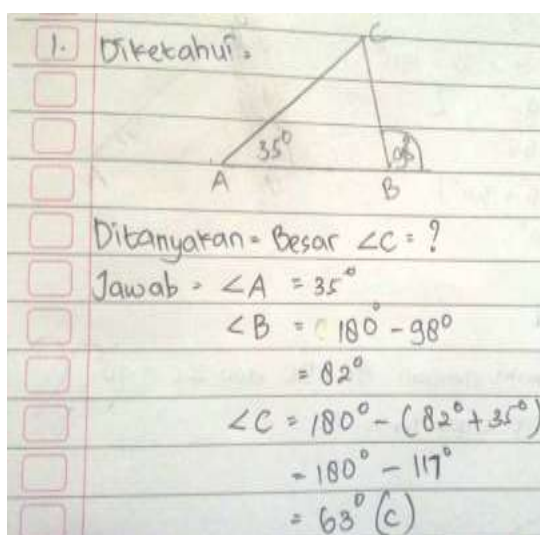 1. Diketahui :
C
35°
98°
A
B
Ditanyakan = Besar ∠C = ?
Jawab = ∠A = 35°
∠B = 180° - 98°
= 82°
∠C = 180° - (82° + 35°)
= 180° - 117°
= 63° (C)